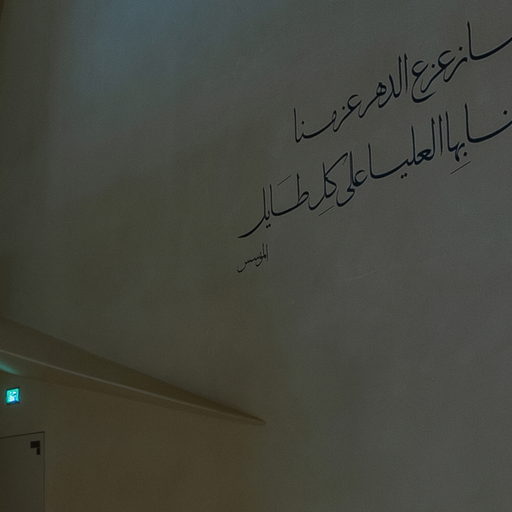 زعزع الدهر عزمنا
بِها العليا على كلِ طَايل
المؤسس